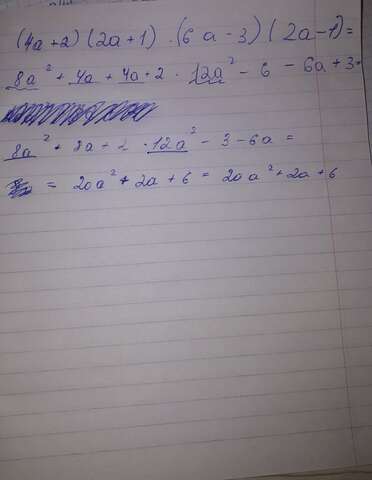 (4a+2)(2a+1)·(6a-3)(2a-1)=
8a² + 4a + 4a + 2 · 12a² - 6 - 6a + 3 =
8a² + 8a + 2 · 12a² - 3 - 6a =
= 20a² + 2a + 6 = 20a² + 2a + 6